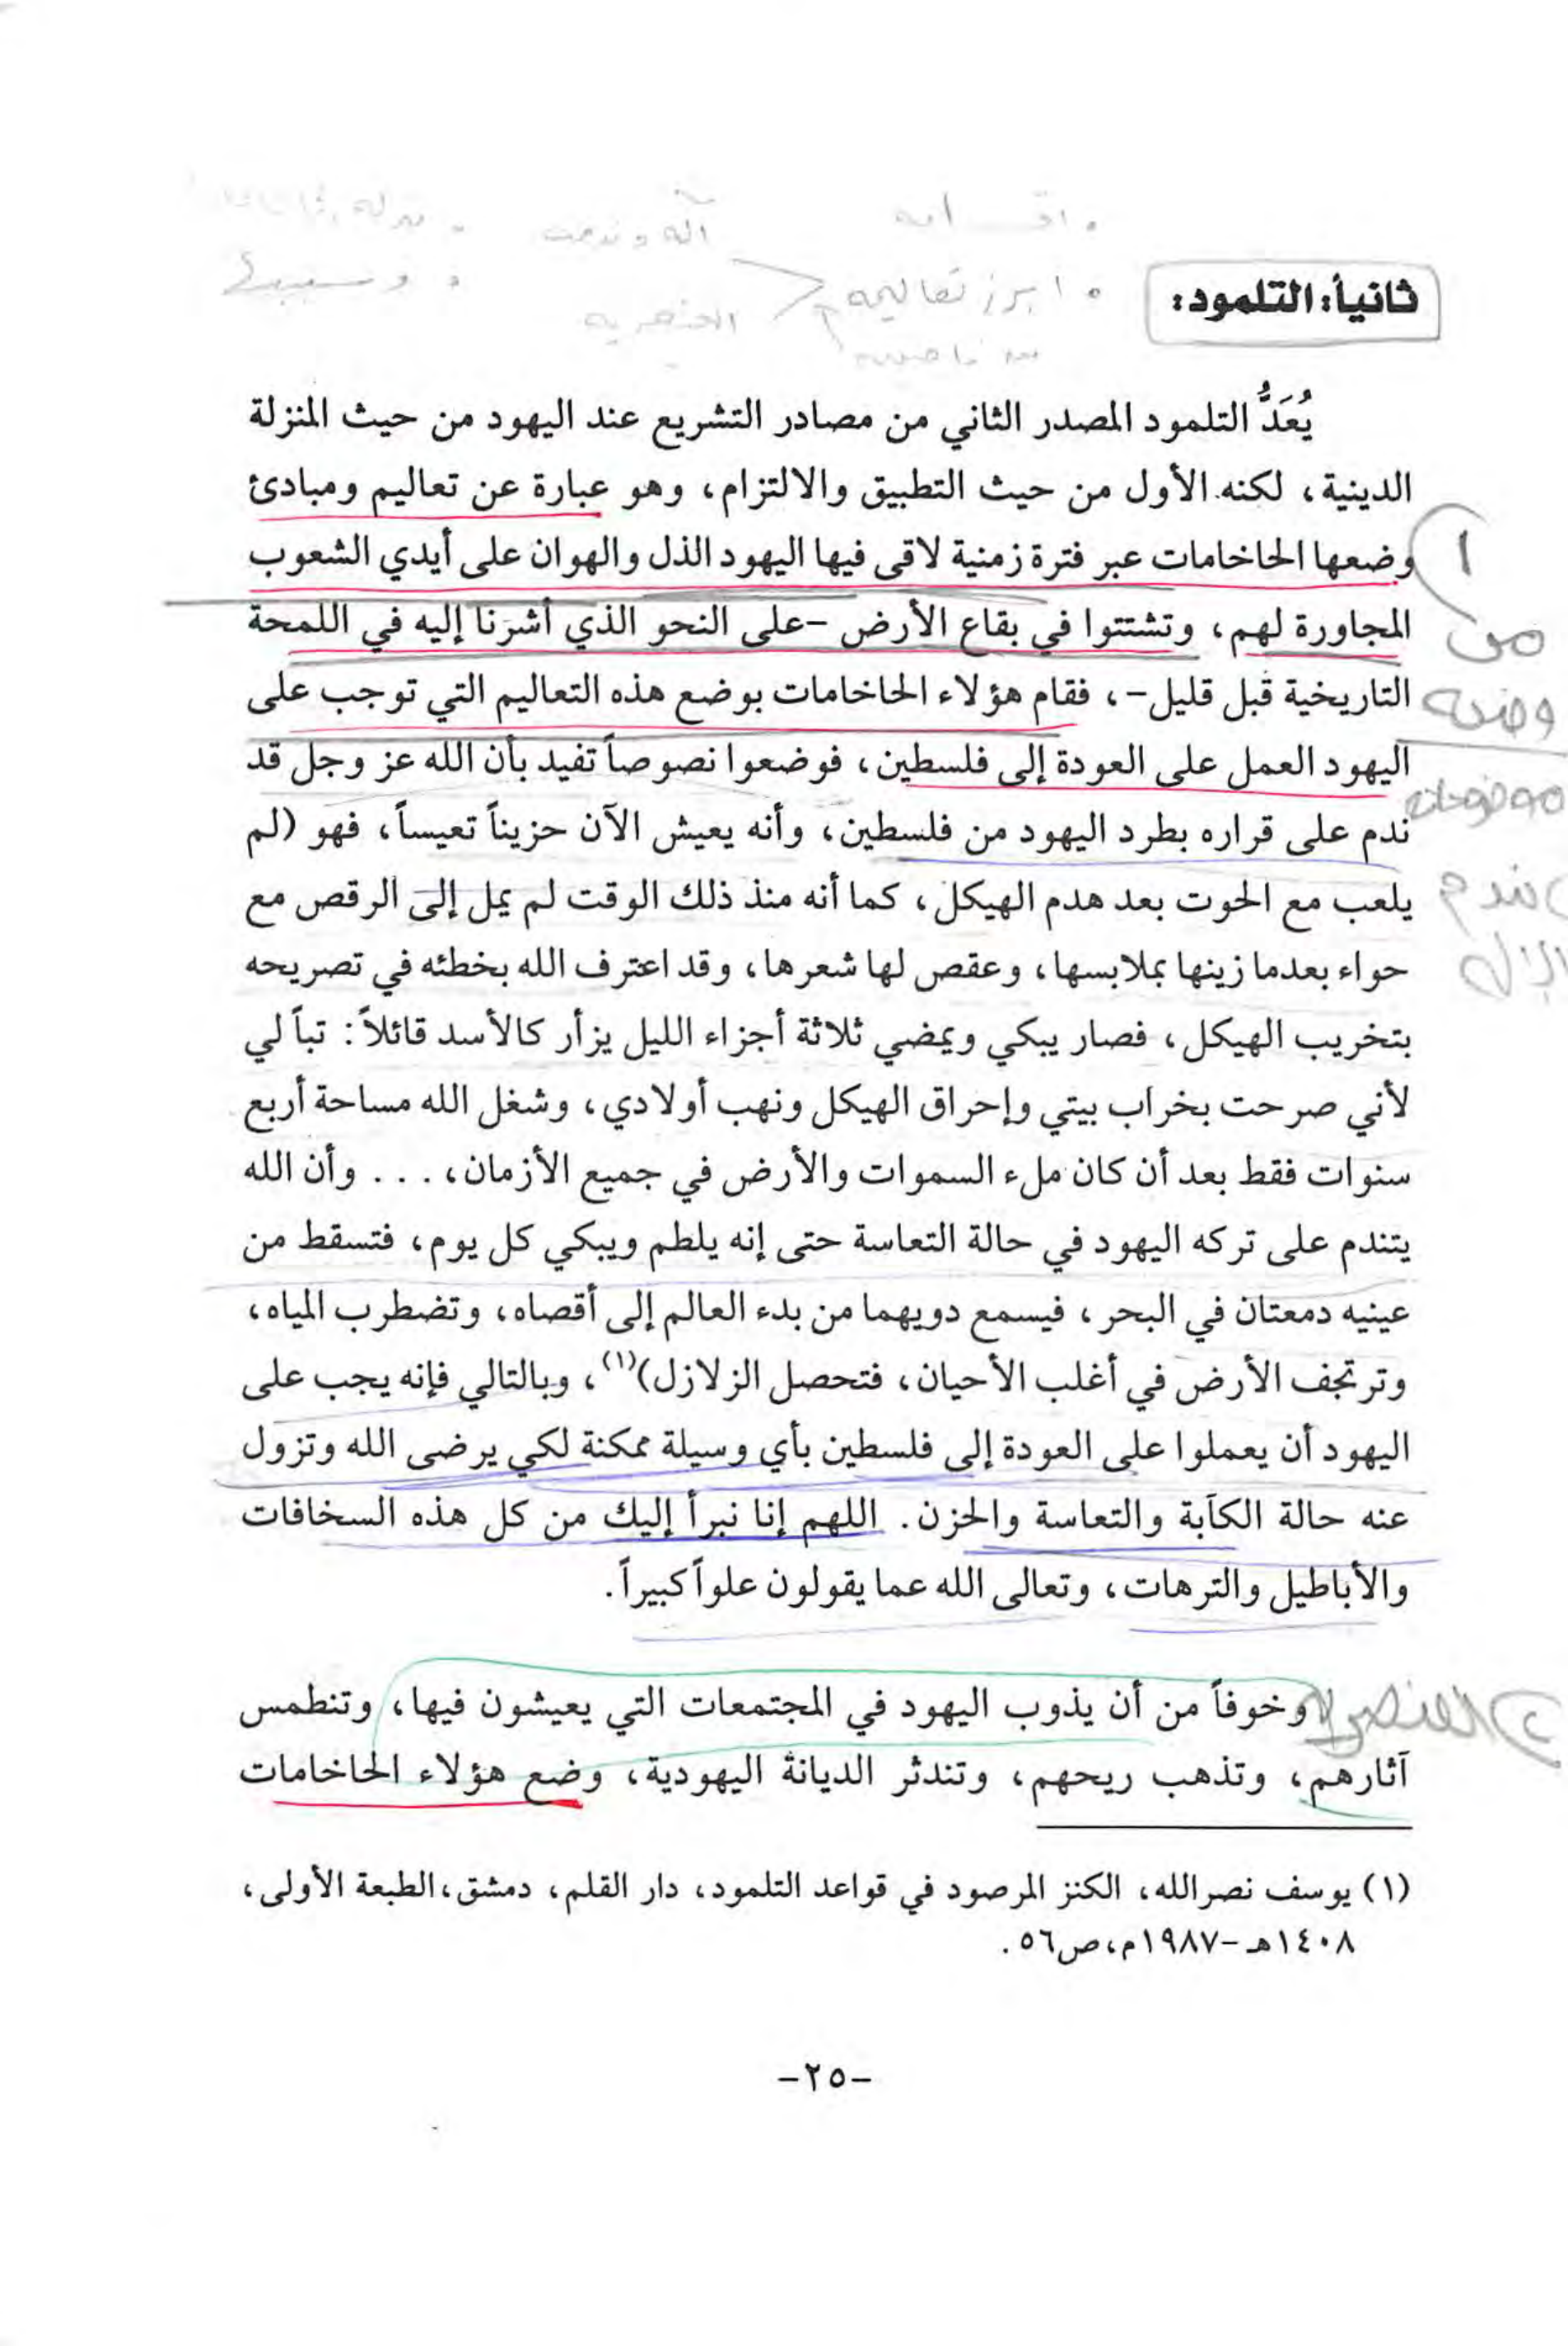 ثانياً: التلمود:
يُعَدُّ التلمود المصدر الثاني من مصادر التشريع عند اليهود من حيث المنزلة
الدينية، لكنه الأول من حيث التطبيق والالتزام، وهو عبارة عن تعاليم ومبادئ
وضعها الحاخامات عبر فترة زمنية لاقى فيها اليهود الذل والهوان على أيدي الشعوب
المجاورة لهم، وتشتتوا في بقاع الأرض -على النحو الذي أشرنا إليه في اللمحة
التاريخية قبل قليل-، فقام هؤلاء الحاخامات بوضع هذه التعاليم التي توجب على
اليهود العمل على العودة إلى فلسطين، فوضعوا نصوصاً تفيد بأن الله عز وجل قد
ندم على قراره بطرد اليهود من فلسطين، وأنه يعيش الآن حزيناً تعيساً، فهو (لم
يلعب مع الحوت بعد هدم الهيكل، كما أنه منذ ذلك الوقت لم يمل إلى الرقص مع
حواء بعدما زينها بملابسها، وعقص لها شعرها، وقد اعترف الله بخطئه في تصريحه
بتخريب الهيكل، فصار يبكي ويمضي ثلاثة أجزاء الليل يزأر كالأسد قائلاً: تباً لي
لأني صرحت بخراب بيتي وإحراق الهيكل ونهب أولادي، وشغل الله مساحة أربع
سنوات فقط بعد أن كان ملء السموات والأرض في جميع الأزمان، ... وأن الله
يتندم على تركه اليهود في حالة التعاسة حتى إنه يلطم ويبكي كل يوم، فتسقط من
عينيه دمعتان في البحر، فيسمع دويهما من بدء العالم إلى أقصاه، وتضطرب المياه،
وترتجف الأرض في أغلب الأحيان، فتحصل الزلازل)(١)، وبالتالي فإنه يجب على
اليهود أن يعملوا على العودة إلى فلسطين بأي وسيلة ممكنة لكي يرضى الله وتزول
عنه حالة الكآبة والتعاسة والحزن. اللهم إنا نبرأ إليك من كل هذه السخافات
والأباطيل والترهات، وتعالى الله عما يقولون علواً كبيراً.
وخوفاً من أن يذوب اليهود في المجتمعات التي يعيشون فيها، وتنطمس
آثارهم، وتذهب ريحهم، وتندثر الديانة اليهودية، وضع هؤلاء الحاخامات
(١) يوسف نصرالله، الكنز المرصود في قواعد التلمود، دار القلم، دمشق، الطبعة الأولى،
١٤٠٨هـ-١٩٨٧م، ص٥٦.
-٢٥-